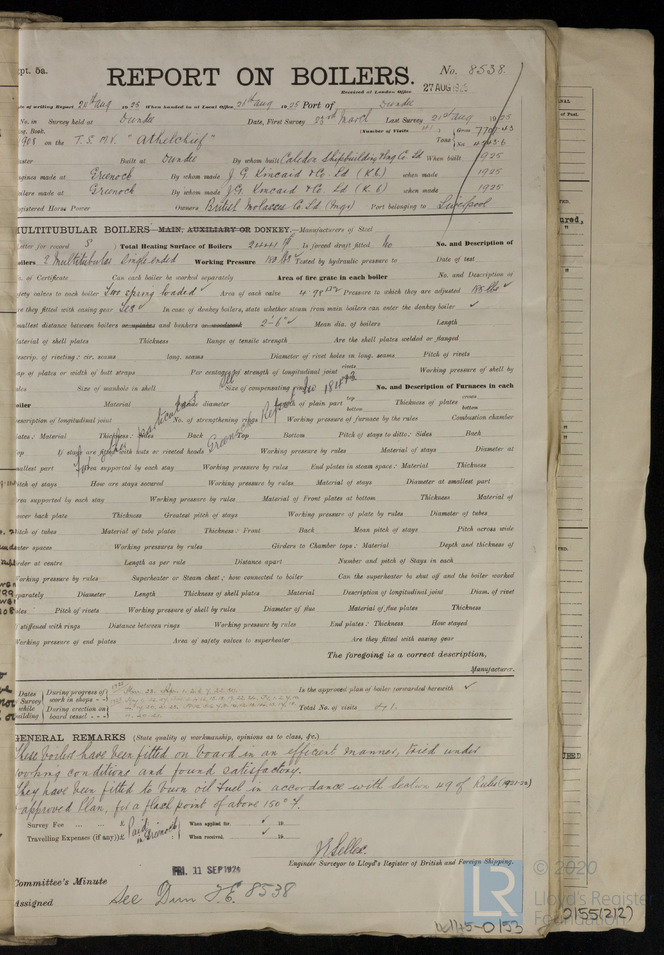 pt. 5a.
REPORT ON BOILERS.
No. 8538.
Received at London Office 27 AUG
of writing Report 24th Aug 1925 When handed in at Local Office 26th Aug 1925 Port of Dundee
No. in Survey held at Dundee Date, First Survey 23rd March Last Survey 21st Aug 1925
Book. (Number of Visits 41)
908 on the T.S. M.V. "Athelchief" Tons Gross Net
Built at Dundee By whom built Caledon Shipbuilding & Eng Co. Ld When built 1925
ngines made at Greenock By whom made J. G. Kincaid & Co. Ld when made 1925
oilers made at Greenock By whom made J. G. Kincaid & Co. Ld when made 1925
egistered Horse Power Owners British Molasses Co. Ld Port belonging to Liverpool
MULTITUBULAR BOILERS MAIN, AUXILIARY OR DONKEY.—Manufacturers of Steel
etter for record S Total Heating Surface of Boilers Is forced draft fitted No No. and Description of
oilers 2 Multitubular Single ended Working Pressure 180 lbs Tested by hydraulic pressure to Date of test
o. of Certificate Can each boiler be worked separately Area of fire grate in each boiler No. and Description of
afety valves to each boiler Two spring loaded Area of each valve Pressure to which they are adjusted
re they fitted with easing gear Yes In case of donkey boilers, state whether steam from main boilers can enter the donkey boiler
mallest distance between boilers or uptakes and bunkers or woodwork 2'-6" Mean dia. of boilers Length
aterial of shell plates Thickness Range of tensile strength Are the shell plates welded or flanged
escrip. of riveting: cir. seams long. seams Diameter of rivet holes in long. seams Pitch of rivets
ap of plates or width of butt straps Per centages of strength of longitudinal joint rivets Working pressure of shell by
ules Size of manhole in shell Size of compensating ring No. and Description of Furnaces in each
oiler Material diameter Length of plain part top bottom Thickness of plates crown bottom
For further particulars See Greenock Report No 18187
escription of longitudinal joint No. of strengthening rings Working pressure of furnace by the rules Combustion chamber
lates: Material Thickness: Sides Back Top Bottom Pitch of stays to ditto: Sides Back
op If stays are fitted with nuts or riveted heads Working pressure by rules Material of stays Diameter at
mallest part Area supported by each stay Working pressure by rules End plates in steam space: Material Thickness
itch of stays How are stays secured Working pressure by rules Material of stays Diameter at smallest part
rea supported by each stay Working pressure by rules Material of Front plates at bottom Thickness Material of
ower back plate Thickness Greatest pitch of stays Working pressure of plate by rules Diameter of tubes
itch of tubes Material of tube plates Thickness: Front Back Mean pitch of stays Pitch across wide
ater spaces Working pressures by rules Girders to Chamber tops: Material Depth and thickness of
irder at centre Length as per rule Distance apart Number and pitch of Stays in each
orking pressure by rules Superheater or Steam chest; how connected to boiler Can the superheater be shut off and the boiler worked
eparately Diameter Length Thickness of shell plates Material Description of longitudinal joint Diam. of rivet
oles Pitch of rivets Working pressure of shell by rules Diameter of flue Material of flue plates Thickness
f stiffened with rings Distance between rings Working pressure by rules End plates: Thickness How stayed
orking pressure of end plates Area of safety valves to superheater Are they fitted with easing gear
The foregoing is a correct description,
Manufacturer.
Dates of Survey while building During progress of work in shops
During erection on board vessel
Is the approved plan of boiler forwarded herewith
Total No. of visits 41.
GENERAL REMARKS (State quality of workmanship, opinions as to class, &c.)
These boilers have been fitted on board in an efficient manner, tried under
working conditions and found satisfactory.
They have been fitted to burn oil fuel in accordance with Section 49 of Rules
approved Plan, for a flash point of above 150° F.
Survey Fee £ Paid in Greenock When applied for. 19
Travelling Expenses (if any) £ When received. 19
Engineer Surveyor to Lloyd's Register of British and Foreign Shipping.
FRI. 11 SEP 1925
Committee's Minute
Assigned See Dun F.E. 8538
© 2020
Lloyd's Register
Foundation
0155(2/2)